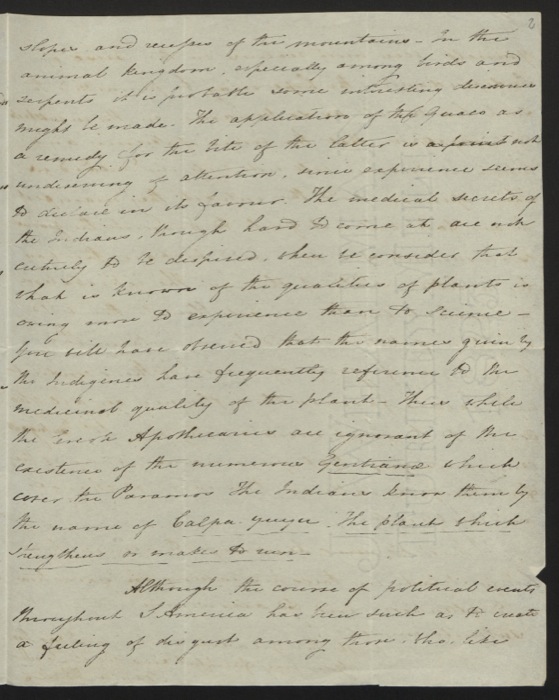 2
slopes, and recesses of the mountains - In the
animal kingdom, especially among birds and
serpents it is probable some interesting discoveries
might be made. The application of the Guaco as
a remedy for the bite of the latter is a point not
undeserving of attention, since experience seems
to declare in its favour. The medical secrets of
the Indians, though hard to come at, are not
entirely to be despised, when we consider that
what is known of the qualities of plants is
owing more to experience than to science -
You will have observed that the names given by
the Indigenes have frequently reference to the
medicinal quality of the plant - Thus while
the Apothecaries are ignorant of the
existence of the numerous Gentianae which
cover the Paramos The Indians know them by
the name of Calpa-yuyu. The plant which
strengthens or makes to run -
Although the course of political events
throughout S. America has been such as to create
a feeling of disgust among those, who, like